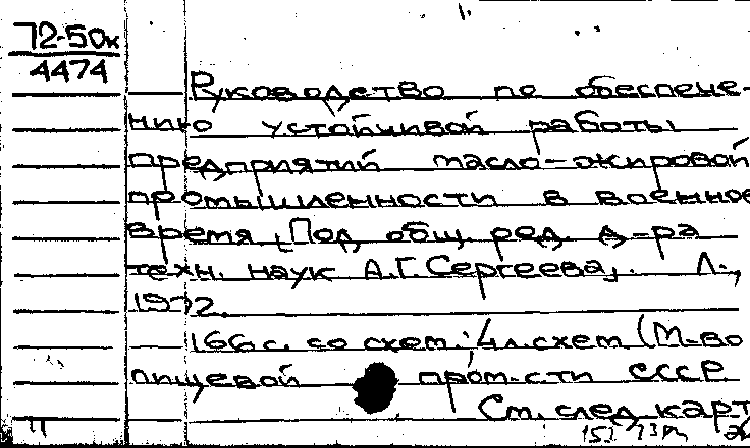 72-50к
4474
Руководство по обеспече-
нию устойчивой работы
предприятий масло-жировой
промышленности в военное
время. [Под общ. ред. д-ра
техн. наук А.Г. Сергеева]. Л.,
1972.
166 с. со схем.; 4 л. схем. (М-во
пищевой пром-сти СССР.
См. след. карт